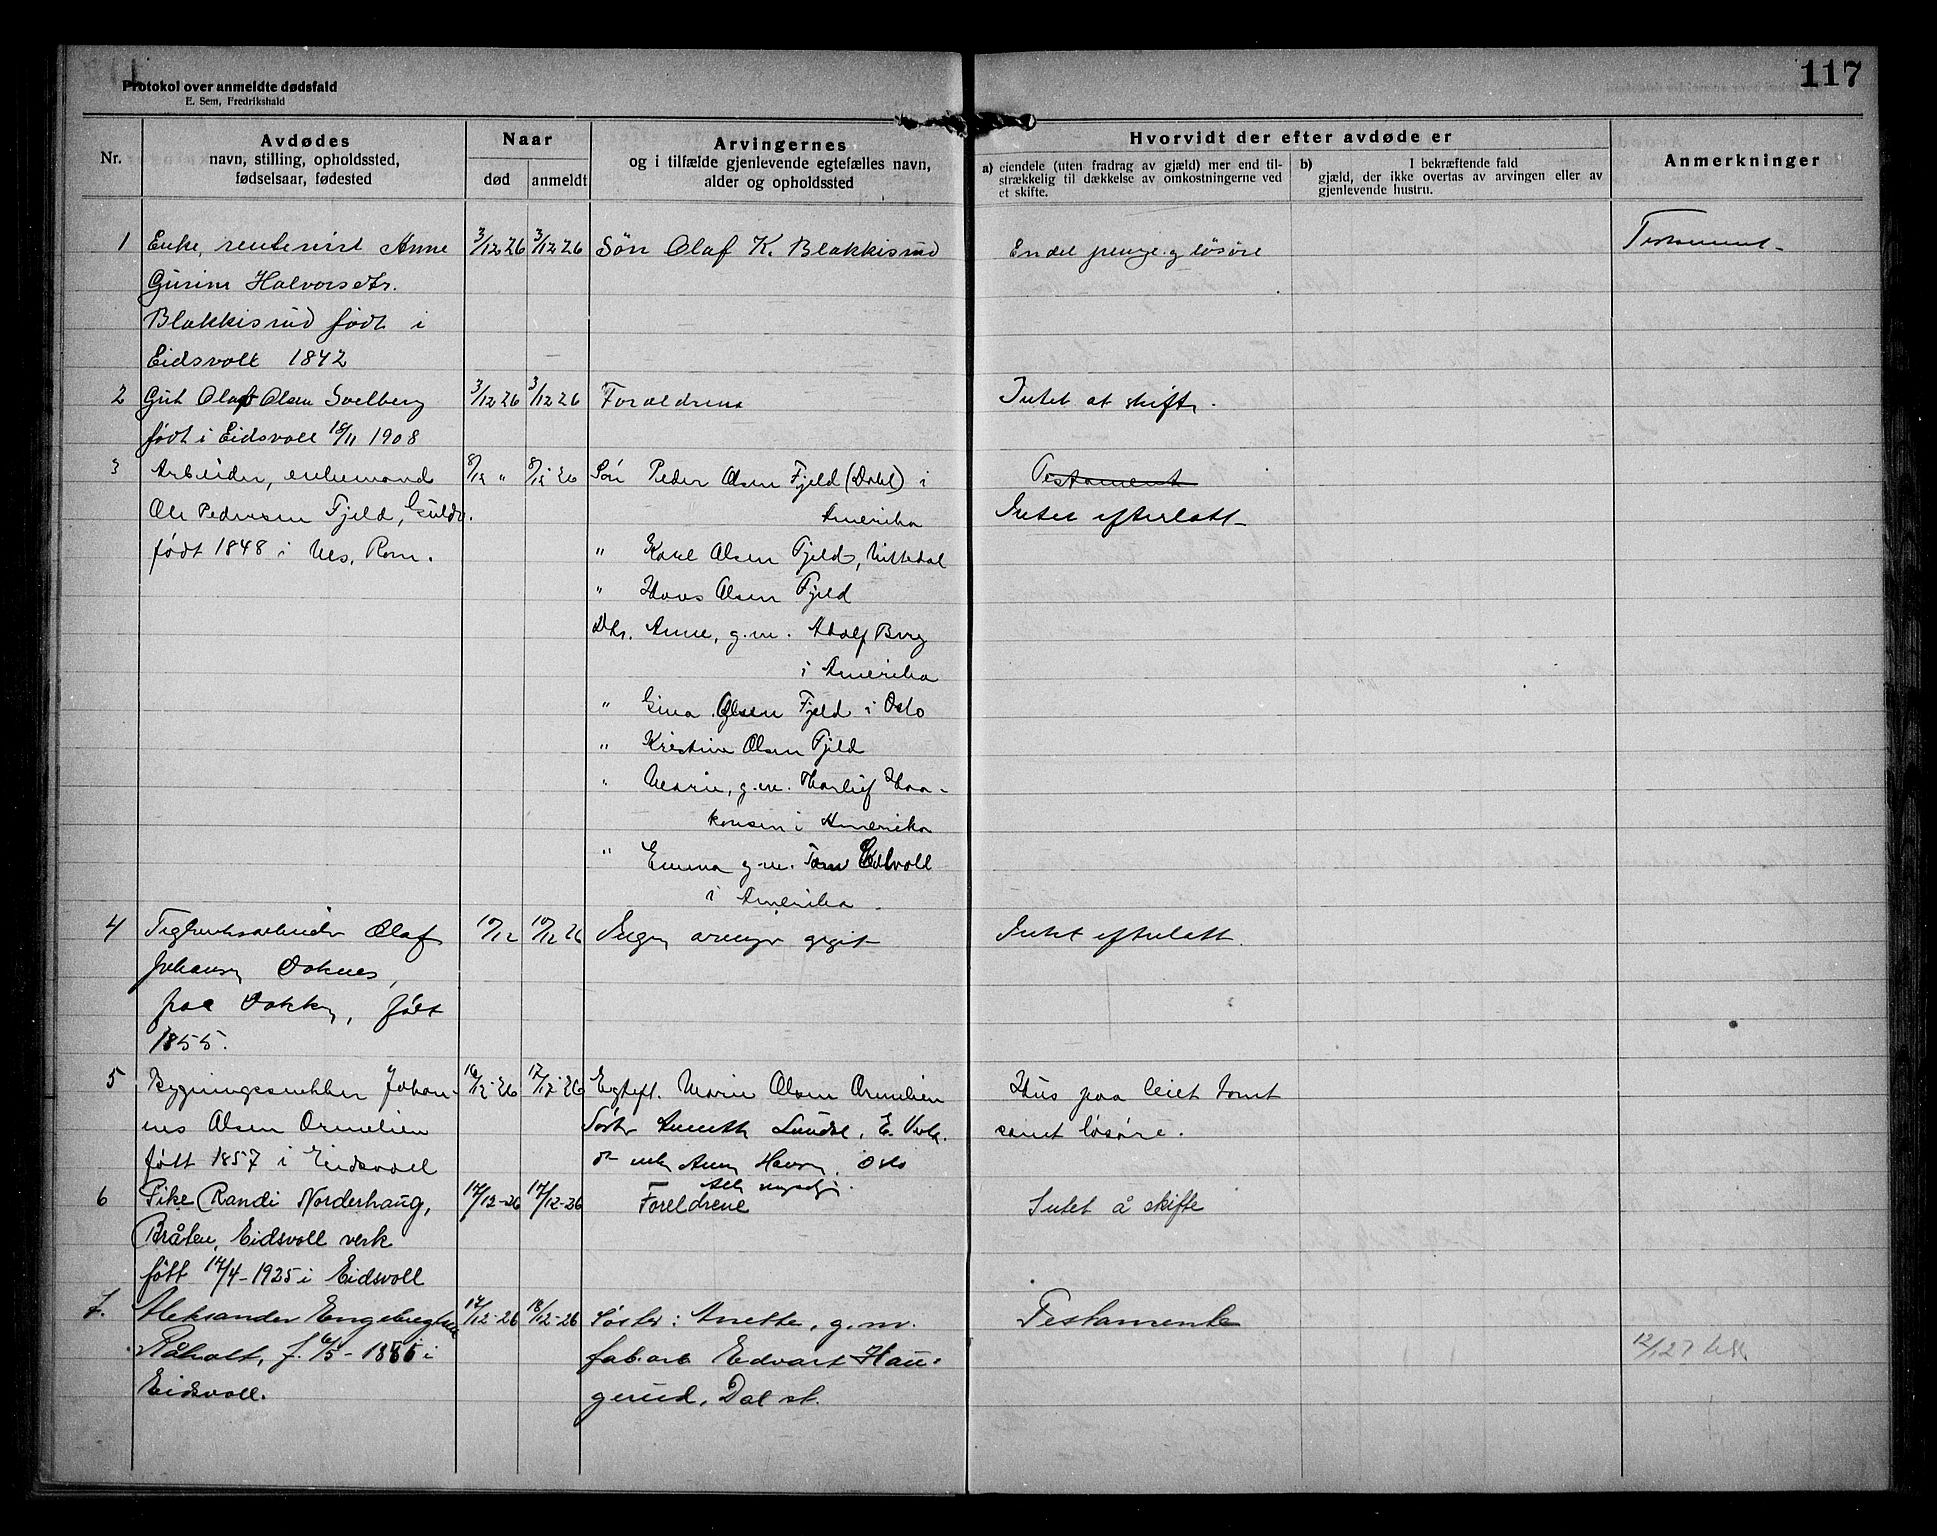 117
Protokol over anmeldte dødsfald
E. Sem, Fredrikshald
Nr.
Avdødes
navn, stilling, opholdssted,
fødselsaar, fødested
Naar
død
anmeldt
Arvingernes
og i tilfælde gjenlevende egtefælles navn,
alder og opholdssted
Hvorvidt der efter avdøde er
a) eiendele (uten fradrag av gjæld) mer end til-
strækkelig til dækkelse av omkostningerne ved
et skifte.
b) I bekræftende fald
gjæld, der ikke overtas av arvingen eller av
gjenlevende hustru.
Anmerkninger
1 Enke, Anne 3/12 26 3/12 26 Søn Olaf K. Blakkisrud En del penge og løsøre Testament
Gurine Halvorsdtr.
Blakkisrud født i
Eidsvoll 1842
2 Gut Olaf Olsen 3/12 26 3/12 26 Forældrene Intet at skifte.
født i Eidsvoll 1908
3 Arbeider, enkemand 8/12 " 8/12 26 Søn Peder Olsen Fjeld (Dahl) i Testament
Amerika
Ole Pedersen Fjeld, Guldv. Intet efterlatt
født 1848 i Nes, Rom.
" Karl Olsen Fjeld, Nittedal
" Hans Olsen Fjeld
Dtr. Anne, g.m. Adolf Berg
i Amerika
" Gina Olsen Fjeld i Oslo
" Kristine Olsen Fjeld
" Marie, g.m. Thorleif Haa-
konsen i Amerika
" Emma g.m.
i Amerika
4 Teglverksarbeider Olaf 10/12 10/12 26 Ingen arvinger opgit Intet efterlatt.
Johansen
paa født
1855.
5 Bygningssnekker Johan- 16/12-26 17/12-26 Egtef. Marie Olsen Ormelien Hus paa leiet tomt
nes Olsen Ormelien Søster E. Verk. samt løsøre.
født 1857 i Eidsvoll Oslo
Alle myndige.
6 Pike Randi Norderhaug, 17/12-26 17/12-26 Foreldrene Intet å skifte
Bråten, Eidsvoll verk
født 14/4-1925 i Eidsvoll
7. Aleksander Engebregtsen 17/12-26 18/12-26 Søster: Anette, g.m. Testamente
Råholt, f. 6/5- i fab.arb Edvart Hau-
Eidsvoll. gerud, Dal st.